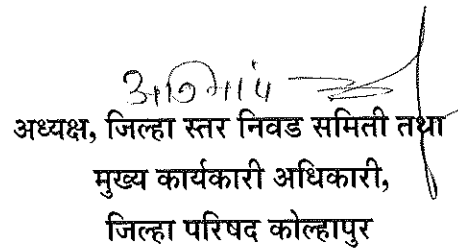 अध्यक्ष, जिल्हा स्तर निवड समिती तथा
मुख्य कार्यकारी अधिकारी,
जिल्हा परिषद कोल्हापुर